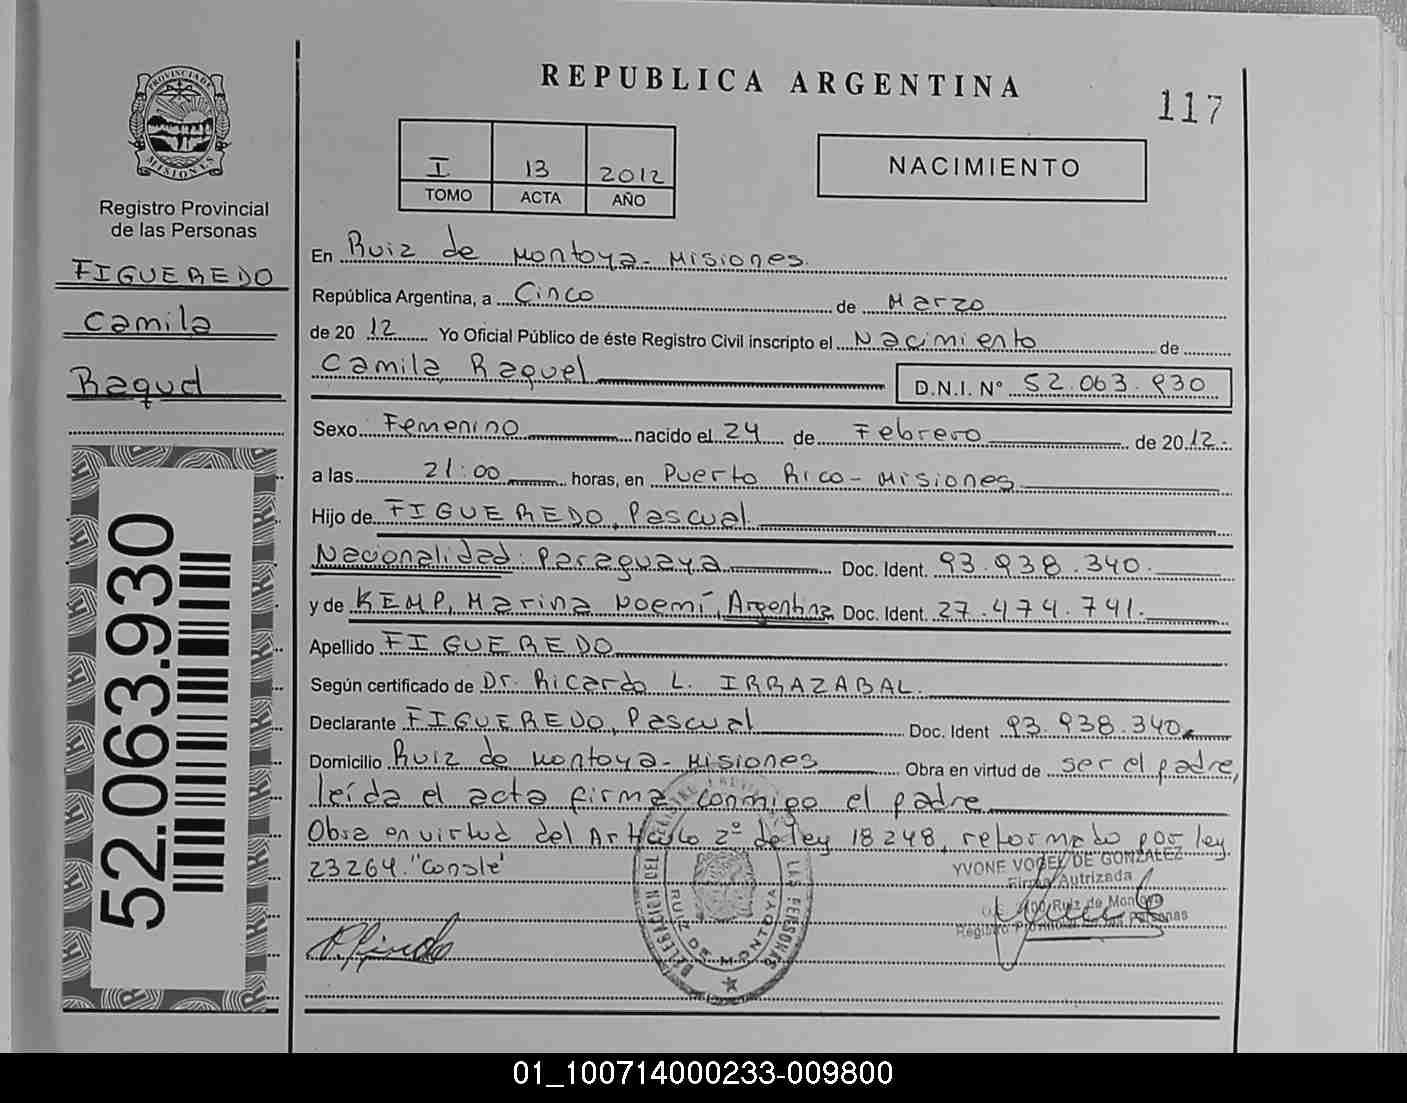 REPUBLICA ARGENTINA
117
PROVINCIA DE
MISIONES
Registro Provincial
de las Personas
FIGUEREDO
Camila
Raquel
52.063.930
I 13 2012
TOMO ACTA AÑO
NACIMIENTO
En Ruiz de Montoya - Misiones.
República Argentina, a Cinco de Marzo
de 20 12 Yo Oficial Público de éste Registro Civil inscripto el Nacimiento de
Camila Raquel D.N.I. N° 52.063.930
Sexo Femenino nacido el 24 de Febrero de 20 12.
a las 21:00 horas, en Puerto Rico - Misiones
Hijo de FIGUEREDO, Pascual.
Nacionalidad: Paraguaya Doc. Ident. 93.938.340.
y de KEMP, Marina Noemí, Argentina Doc. Ident. 27.474.741.
Apellido FIGUEREDO
Según certificado de Dr. Ricardo L. IRRAZABAL.
Declarante FIGUEREDO, Pascual Doc. Ident 93.938.340.
Domicilio Ruiz de Montoya - Misiones Obra en virtud de ser el padre,
leída el acta firma conmigo el padre
Obra en virtud del Artículo 2º de ley 18248, reformado por ley
23264. "Conste"
YVONE VOGEL DE GONZALEZ
Firma Autrizada
Ruiz de Montoya
Registro Provincial de las Personas
DELEGACION DEL REGISTRO PROVINCIAL DE LAS PERSONAS
RUIZ DE MONTOYA
01_100714000233-009800